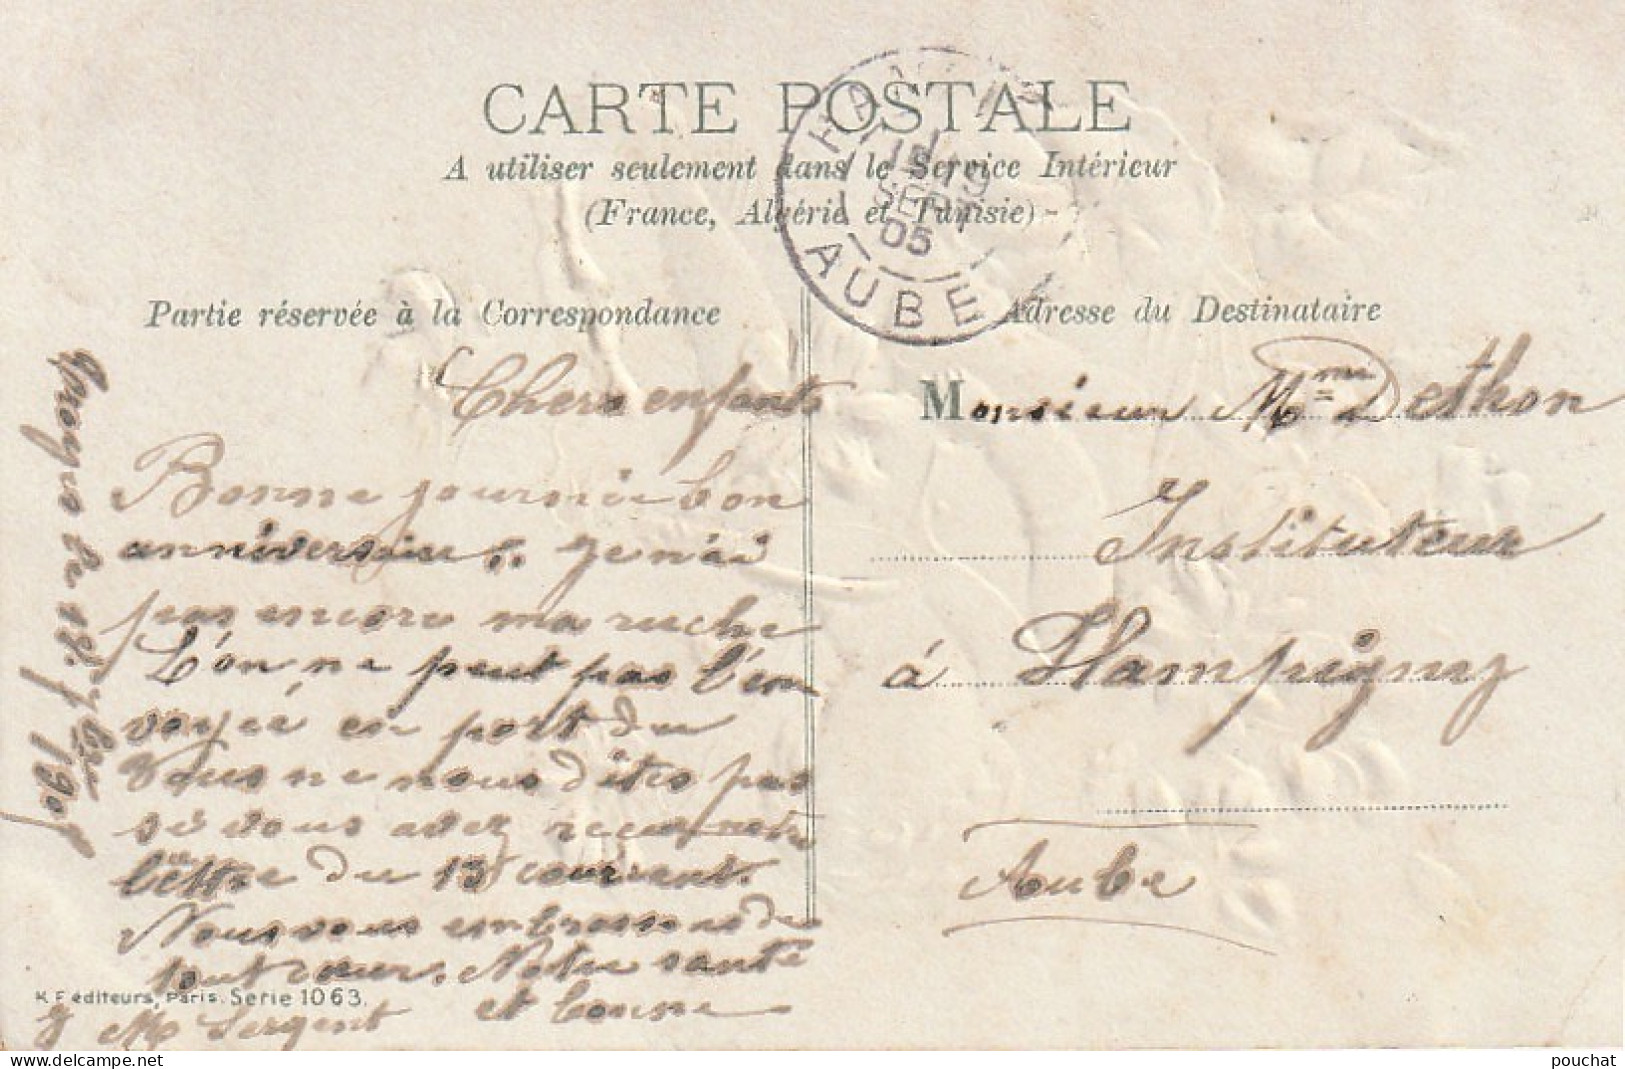 CARTE POSTALE
A utiliser seulement dans le Service Intérieur
(France, Algérie et Tunisie)
19
SEPT
05
AUBE
Partie réservée à la Correspondance
Adresse du Destinataire
Chers enfants
Bonne journée bon
anniversaire. Je n'ai
pas encore ma ruche
L'on ne peut pas l'en
voyée en port du
Vous ne nous dites pas
si vous avez reçu notre
lettre du 13 courant.
Nous vous embrassons de
tout cœur. Notre santé
et bonne
M Sergent
le 18 7bre 1905
Monsieur Mme Dethon
Instituteur
à Hampigny
Aube
K.F. éditeurs, Paris. Série 1063.
delcampe.net
pouchat